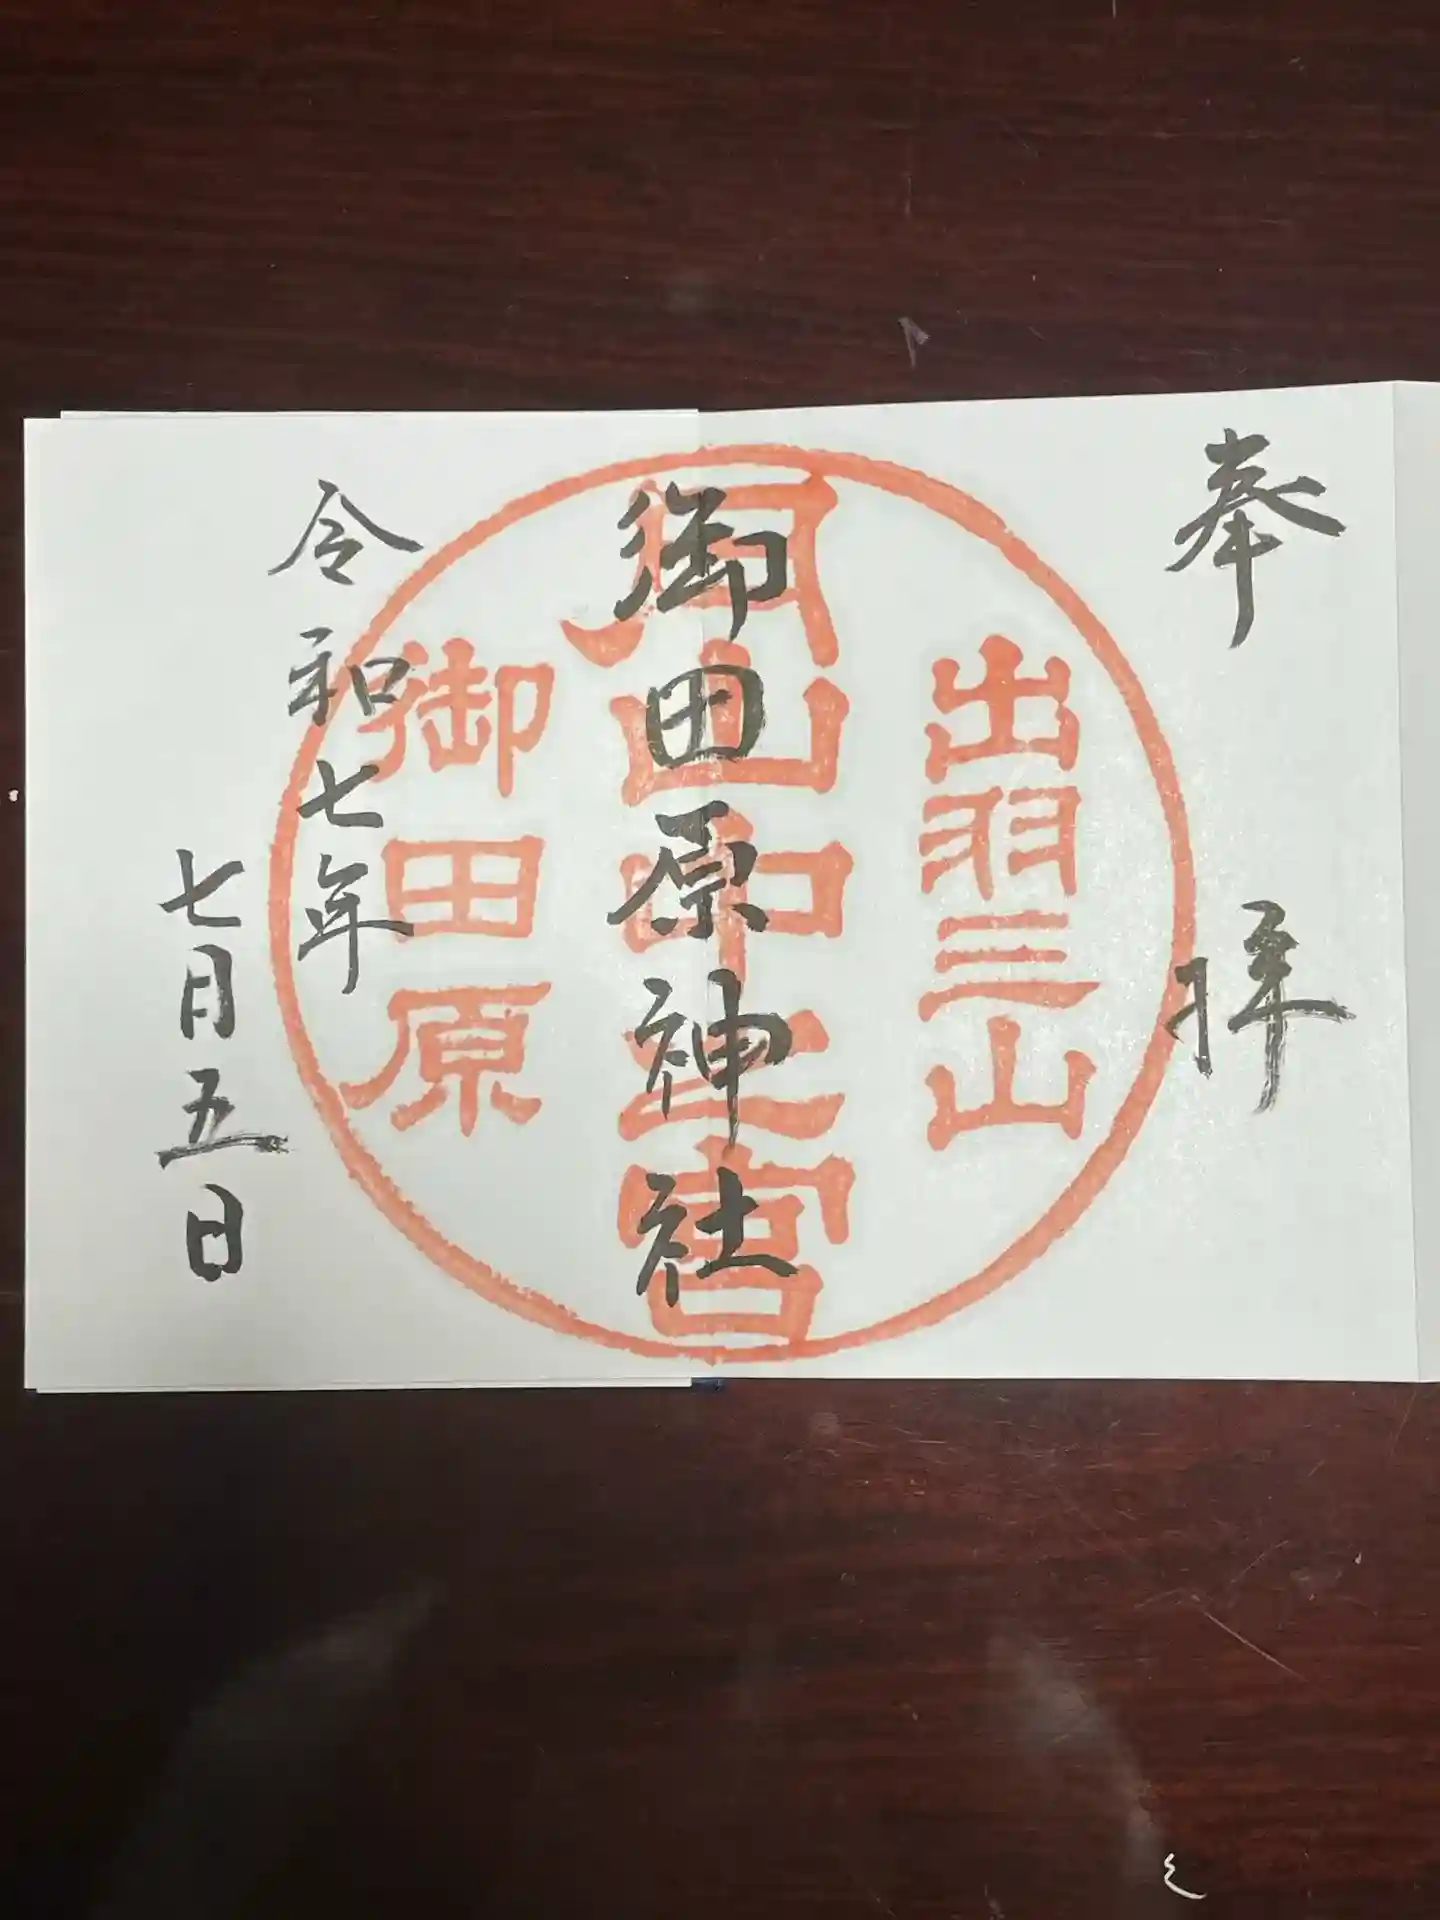 奉拝
出羽三山
月山中之宮
御田原神社
御田原
令和七年
七月五日